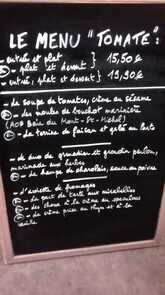 LE MENU "TOMATE":
- entrée et plat } 15,50€
ou plat et dessert
- entrée, plat et dessert } 19,90€
- La soupe de tomates, crème au sésame
- Les moules de bouchot marinière
AOP Baie du Mont-St-Michel)
- La terrine de faisan et gelée au
- Le duo de grenadier et poisson
marinade aux herbes
- La hampe de charolais, sauce au poivre
- L'assiette de fromages
- La part de tarte aux mirabelles
- à la crème au speculoos
- La crème prise au thym et à la